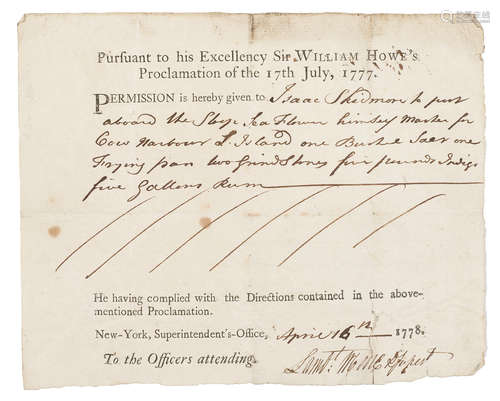 Pursuant to his Excellency Sir WILLIAM HOWE's
Proclamation of the 17th July, 1777.
PERMISSION is hereby given to Isaac Skidmore to put
aboard the Sloop Sea Flower himself Master for
Cow Harbour L. Island one Bushel Salt one
Frying pan two Grind Stones five pounds Indigo
five Gallons Rum
He having complied with the Directions contained in the above-
mentioned Proclamation.
New-York, Superintendent's-Office, April 16th 1778.
To the Officers attending. Lambt. Moore